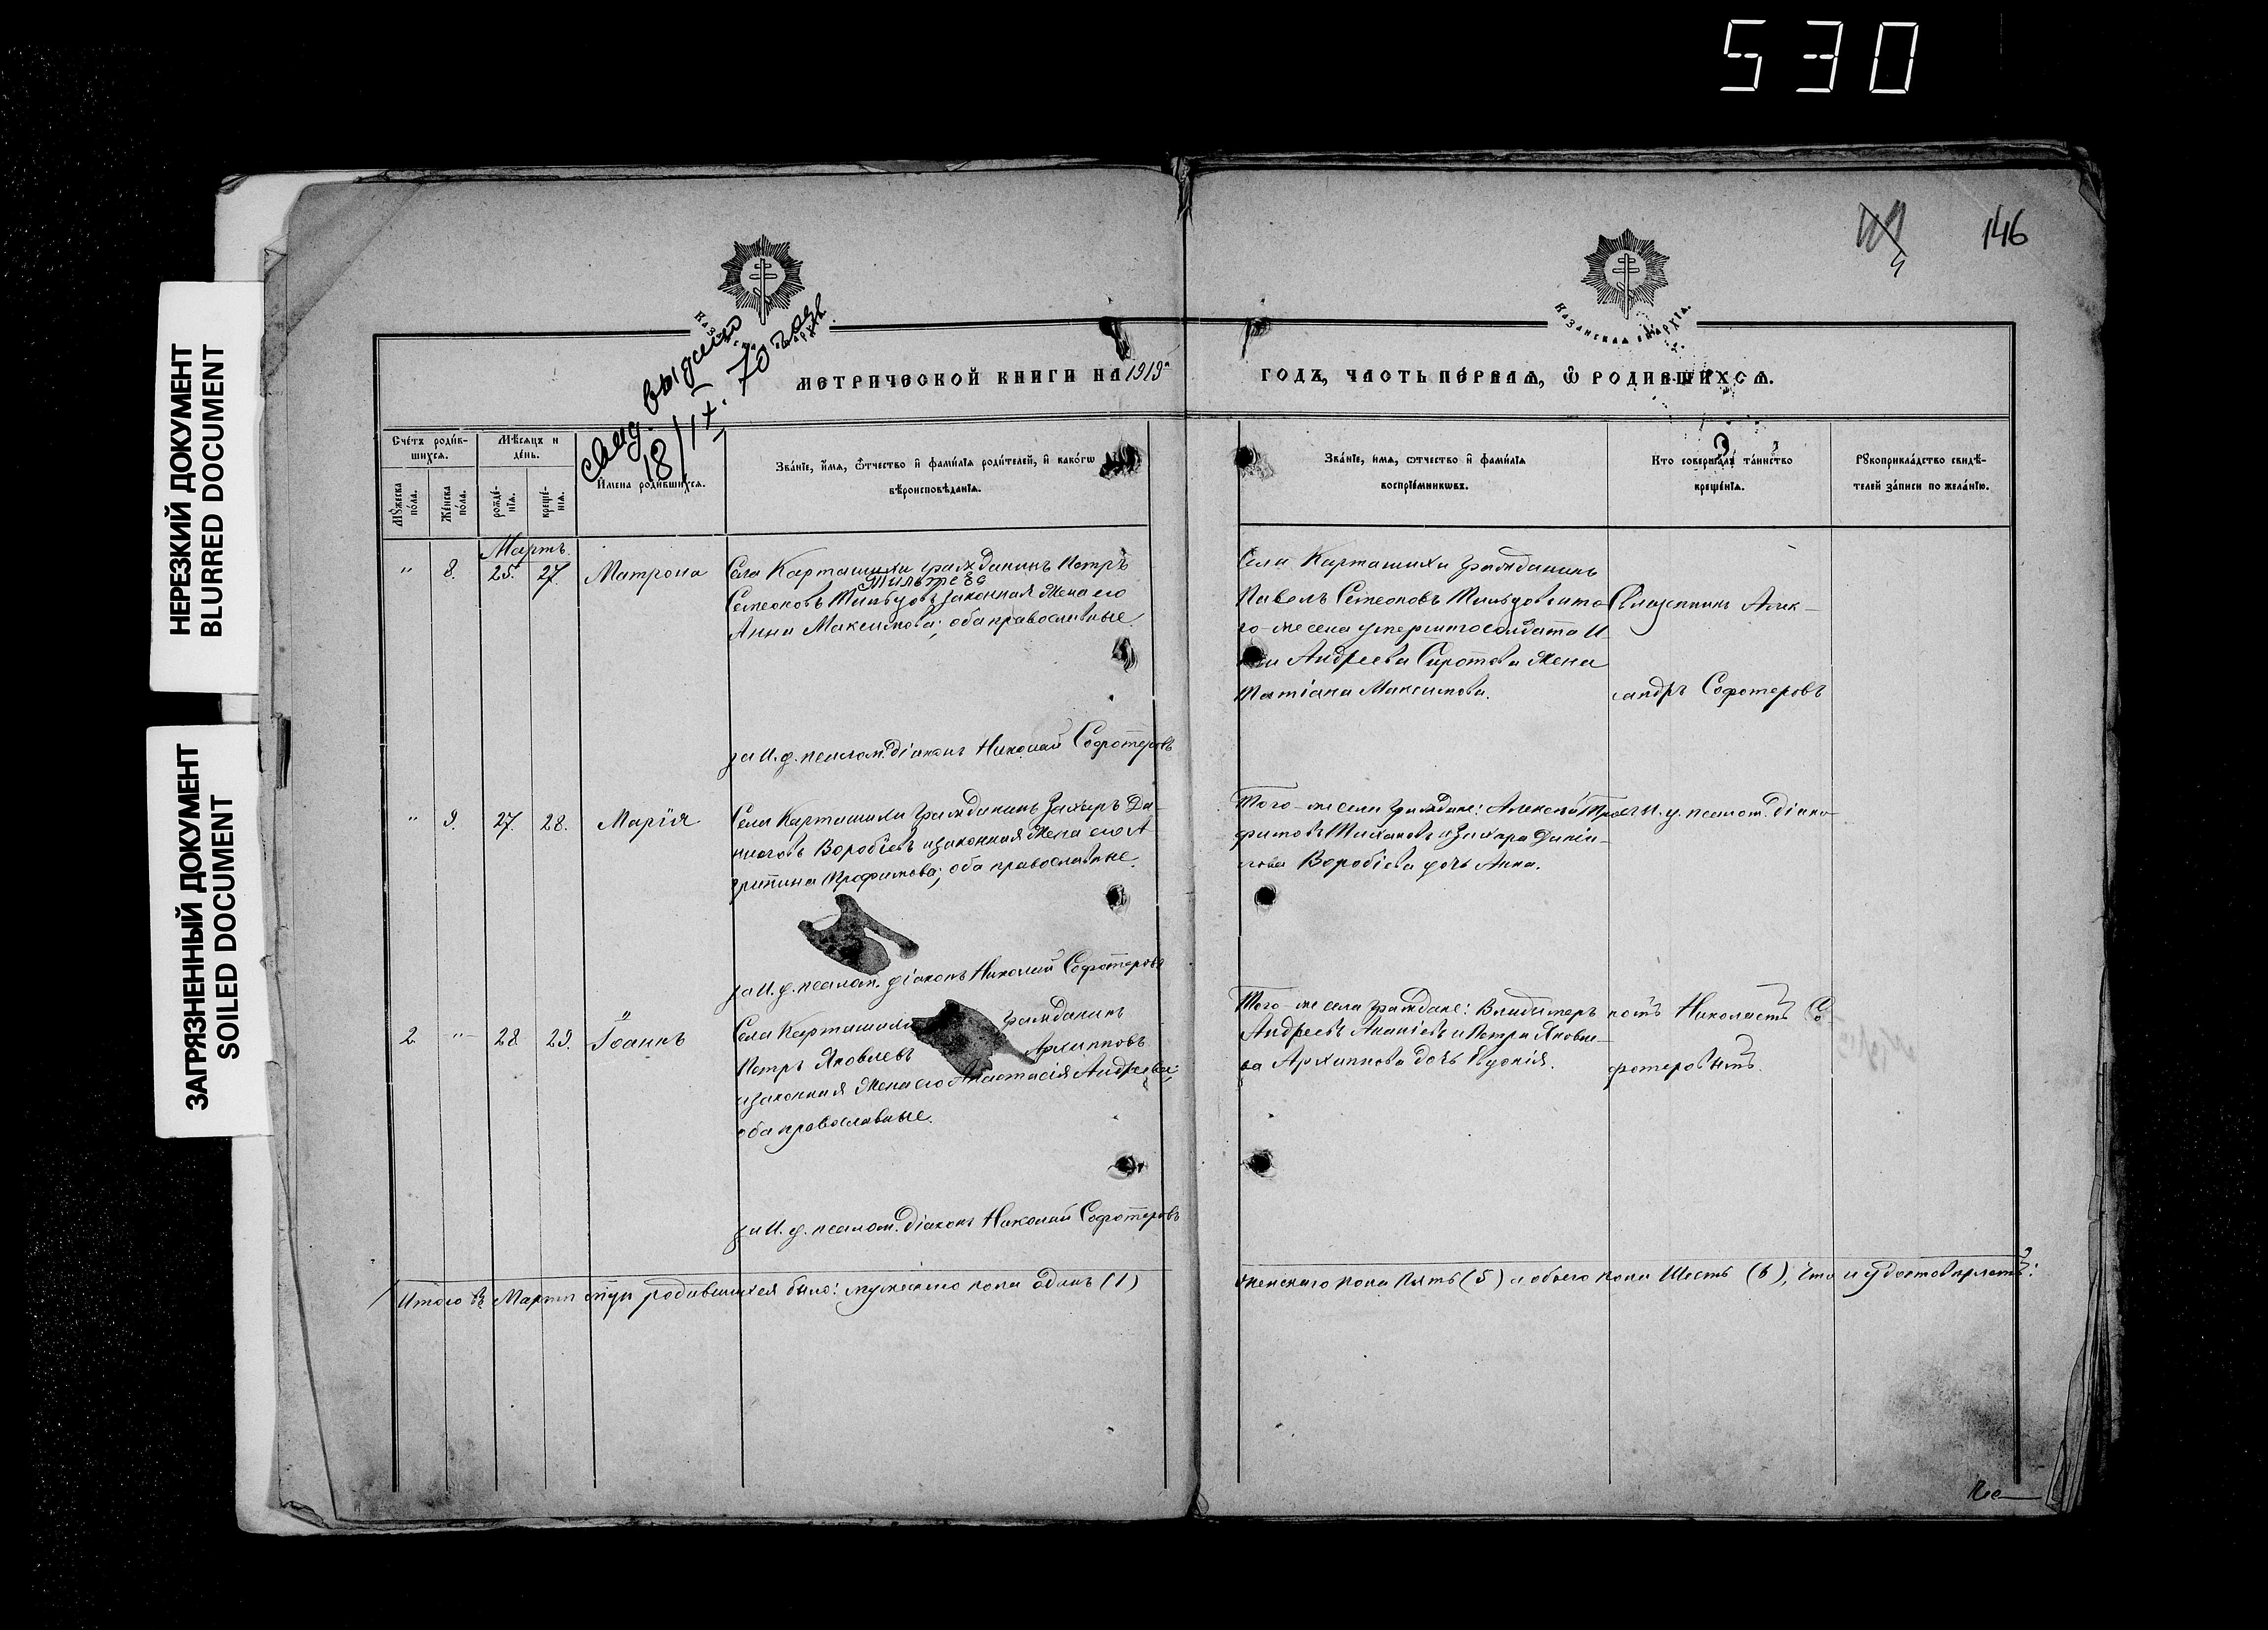 530
НЕРЕЗКИЙ ДОКУМЕНТ
BLURRED DOCUMENT
ЗАГРЯЗНЕННЫЙ ДОКУМЕНТ
SOILED DOCUMENT
146
Казанская епархія.
Казанская епархія.
18/IX. 70
МЕТРИЧЕСКОЙ КНИГИ НА 1919
ГОДЪ, ЧАСТЬ ПЕ́РВАЯ, Ѽ РОДИВШИХСЯ.
Сче́тъ роди́в-
шихся.
Мѣ́сяцъ и
де́нь.
И҆мена родившихся.
Зва́нїе, и҆́мя, ѻ҆́тчество и҆ фами́лїя роди́телей, и҆ како́гѡ
вѣроисповѣ́данїя.
Мꙋ́жеска
по́ла.
Же́нска
по́ла.
рожде́-
нїя.
креще́-
нїя.
Зва́нїе, имя, ѻтчество и҆ фами́лїя
воспрїе́мникѡвъ.
Кто соверша́лъ та́инство
креще́нїя.
Рꙋкоприкла́дство свидѣ́-
телей за́писи по жела́нїю.
Мартъ.
" 8. 25. 27. Матрона
Села Карташихи гражданинъ Петръ
Семеновъ законная жена его
Анна Максимова; оба православные.
за И. д. псалом. діаконъ Николай Софотеровъ
Села Карташихи гражданинъ
Павелъ Семеновъ
го-же села умершаго солдата И
Андреева Сиротова жена
Татіана Максимова.
Священникъ Алек-
сандръ Софотеровъ
" 9. 27. 28. Марія
Села Карташихи гражданинъ Захаръ Да-
ниловъ Воробіевъ и законная жена его А
грипина Трофимова; оба православные.
за И. д. псалом. діаконъ Николай Софотеровъ
Того-же села граждане: Алексѣй Тро
фимовъ и Захара Даніи-
лова Воробіева дочь Анна.
съ и. д. псалом. діако-
2. " 28. 29. Іоаннъ
Села Карташихи гражданинъ
Петръ Яковлевъ Архипповъ
и законная жена его Анастасія Андреева;
оба православные.
за И. д. псалом. діаконъ Николай Софотеровъ
Того-же села граждане: Владимеръ
Андреевъ Ананіевъ и Петра Яковле-
ва Архиппова дочь Евдокія.
номъ Николаемъ Со
фотеровымъ.
Итого въ Мартѣ родившихся было: мужескаго пола одинъ (1)
женскаго пола пять (5) а обоего пола шесть (6), что и удостовѣряемъ: